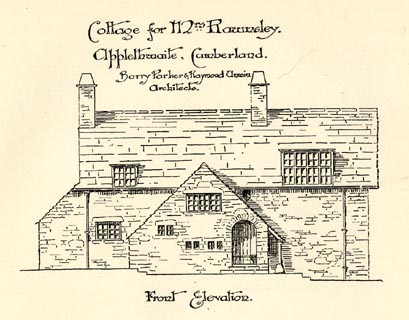 Cottage for Mrs Rawnsley.
Applethwaite, Cumberland.
Barry Parker & Raymond Unwin
Architects.
Front Elevation.